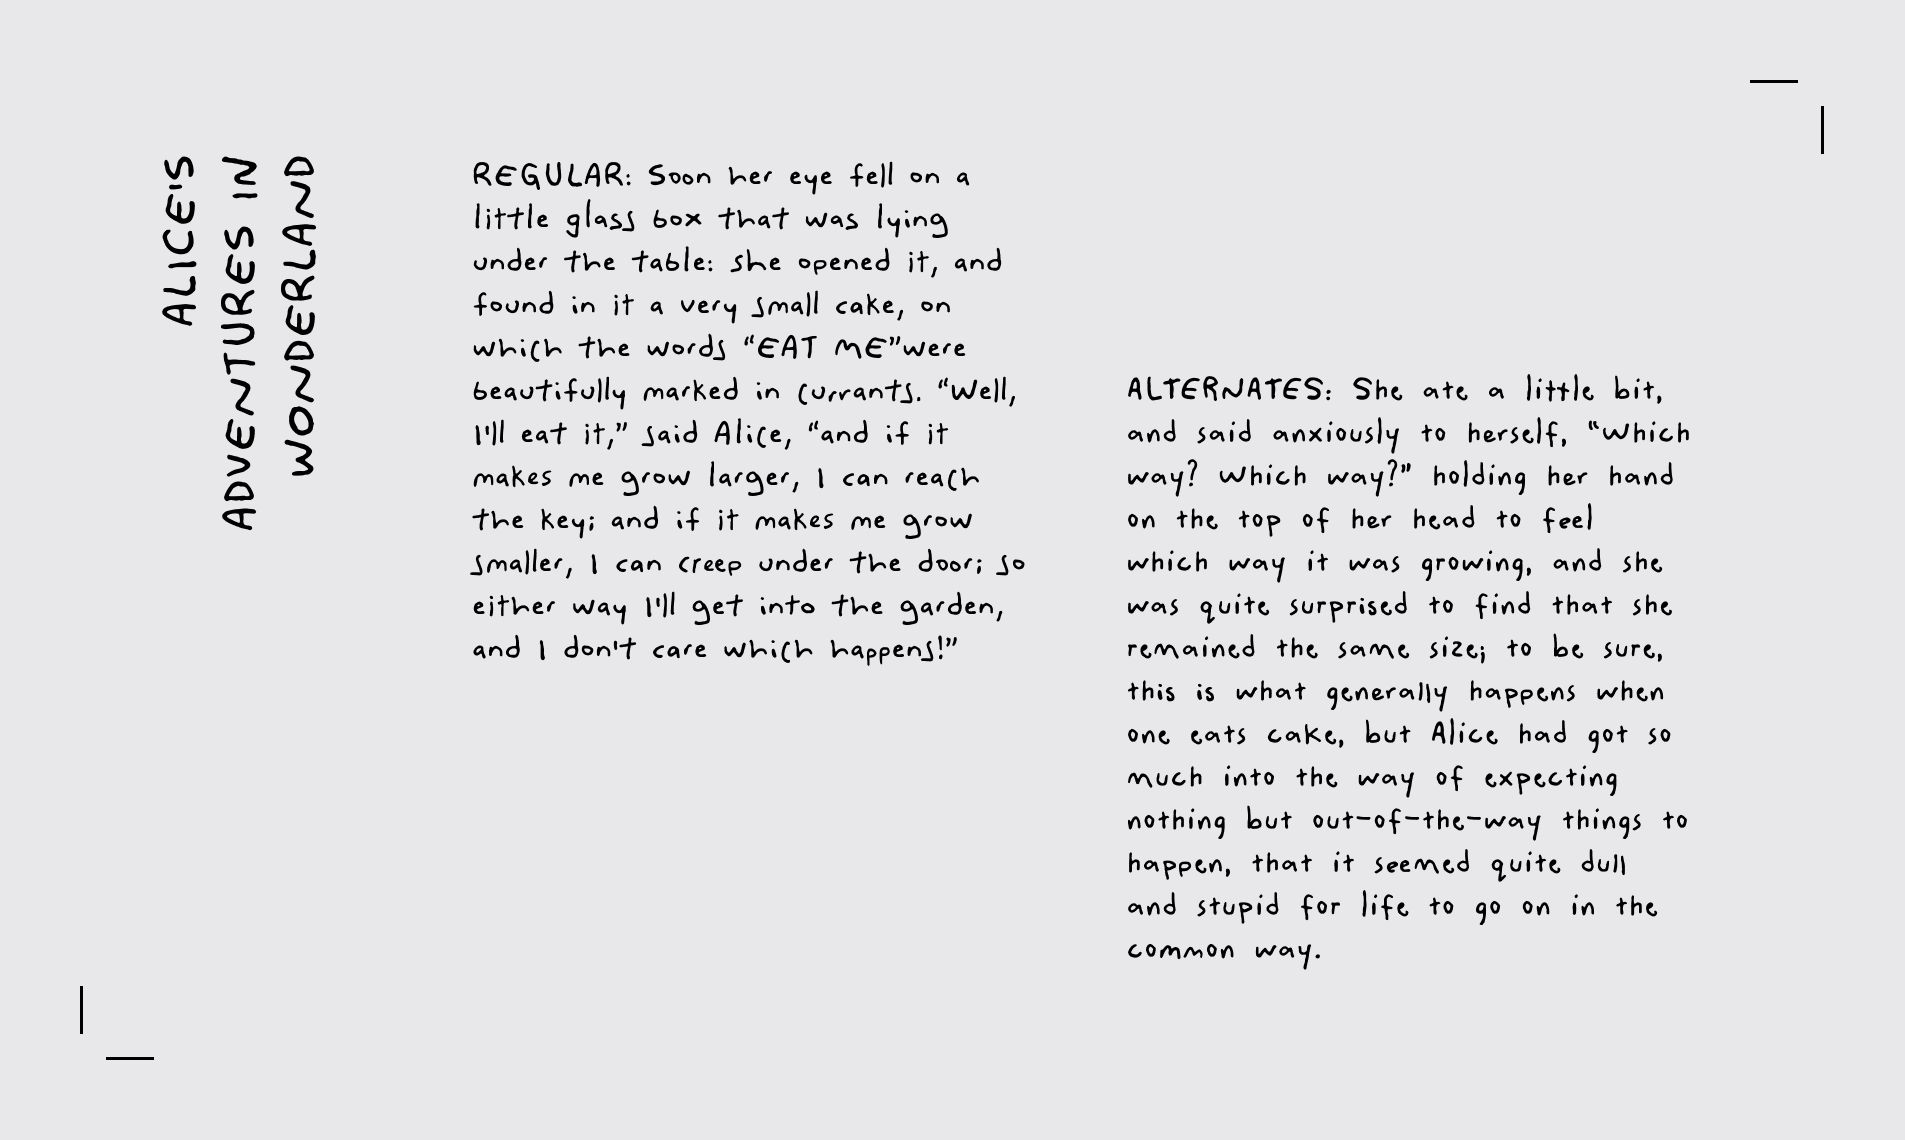 ALICE'S
ADVENTURES IN
WONDERLAND
REGULAR: Soon her eye fell on a
little glass box that was lying
under the table: she opened it, and
found in it a very small cake, on
which the words “EAT ME”were
beautifully marked in currants. “Well,
I'll eat it,” said Alice, “and if it
makes me grow larger, I can reach
the key; and if it makes me grow
smaller, I can creep under the door; so
either way I'll get into the garden,
and I don't care which happens!”
ALTERNATES: She ate a little bit,
and said anxiously to herself, “Which
way? Which way?” holding her hand
on the top of her head to feel
which way it was growing, and she
was quite surprised to find that she
remained the same size; to be sure,
this is what generally happens when
one eats cake, but Alice had got so
much into the way of expecting
nothing but out-of-the-way things to
happen, that it seemed quite dull
and stupid for life to go on in the
common way.